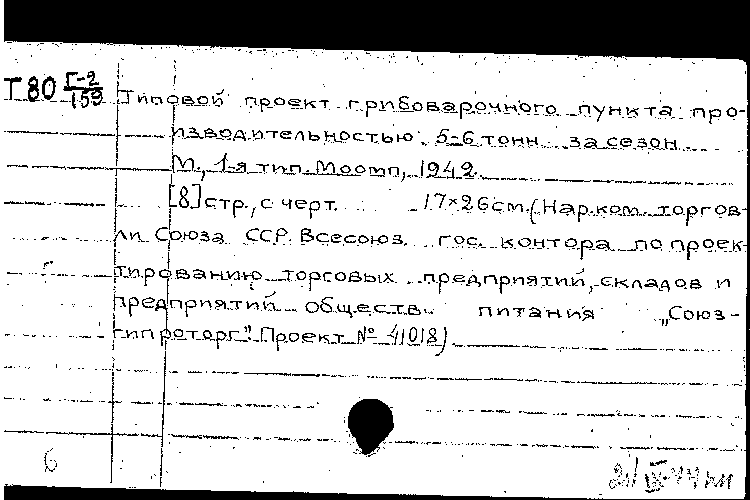 Т80 Г-2/159 Типовой проект грибоварочного пункта про-
изводительностью 5-6 тонн за сезон.
М., 1-я тип. Моотп, 1942.
[8] стр., с черт. 17×26 см. (Нар. ком. торгов-
ли Союза ССР. Всесоюз. гос. контора по проек-
тированию торговых предприятий, складов и
предприятий обществ. питания „Союз-
гипроторг". Проект № 41018)
6